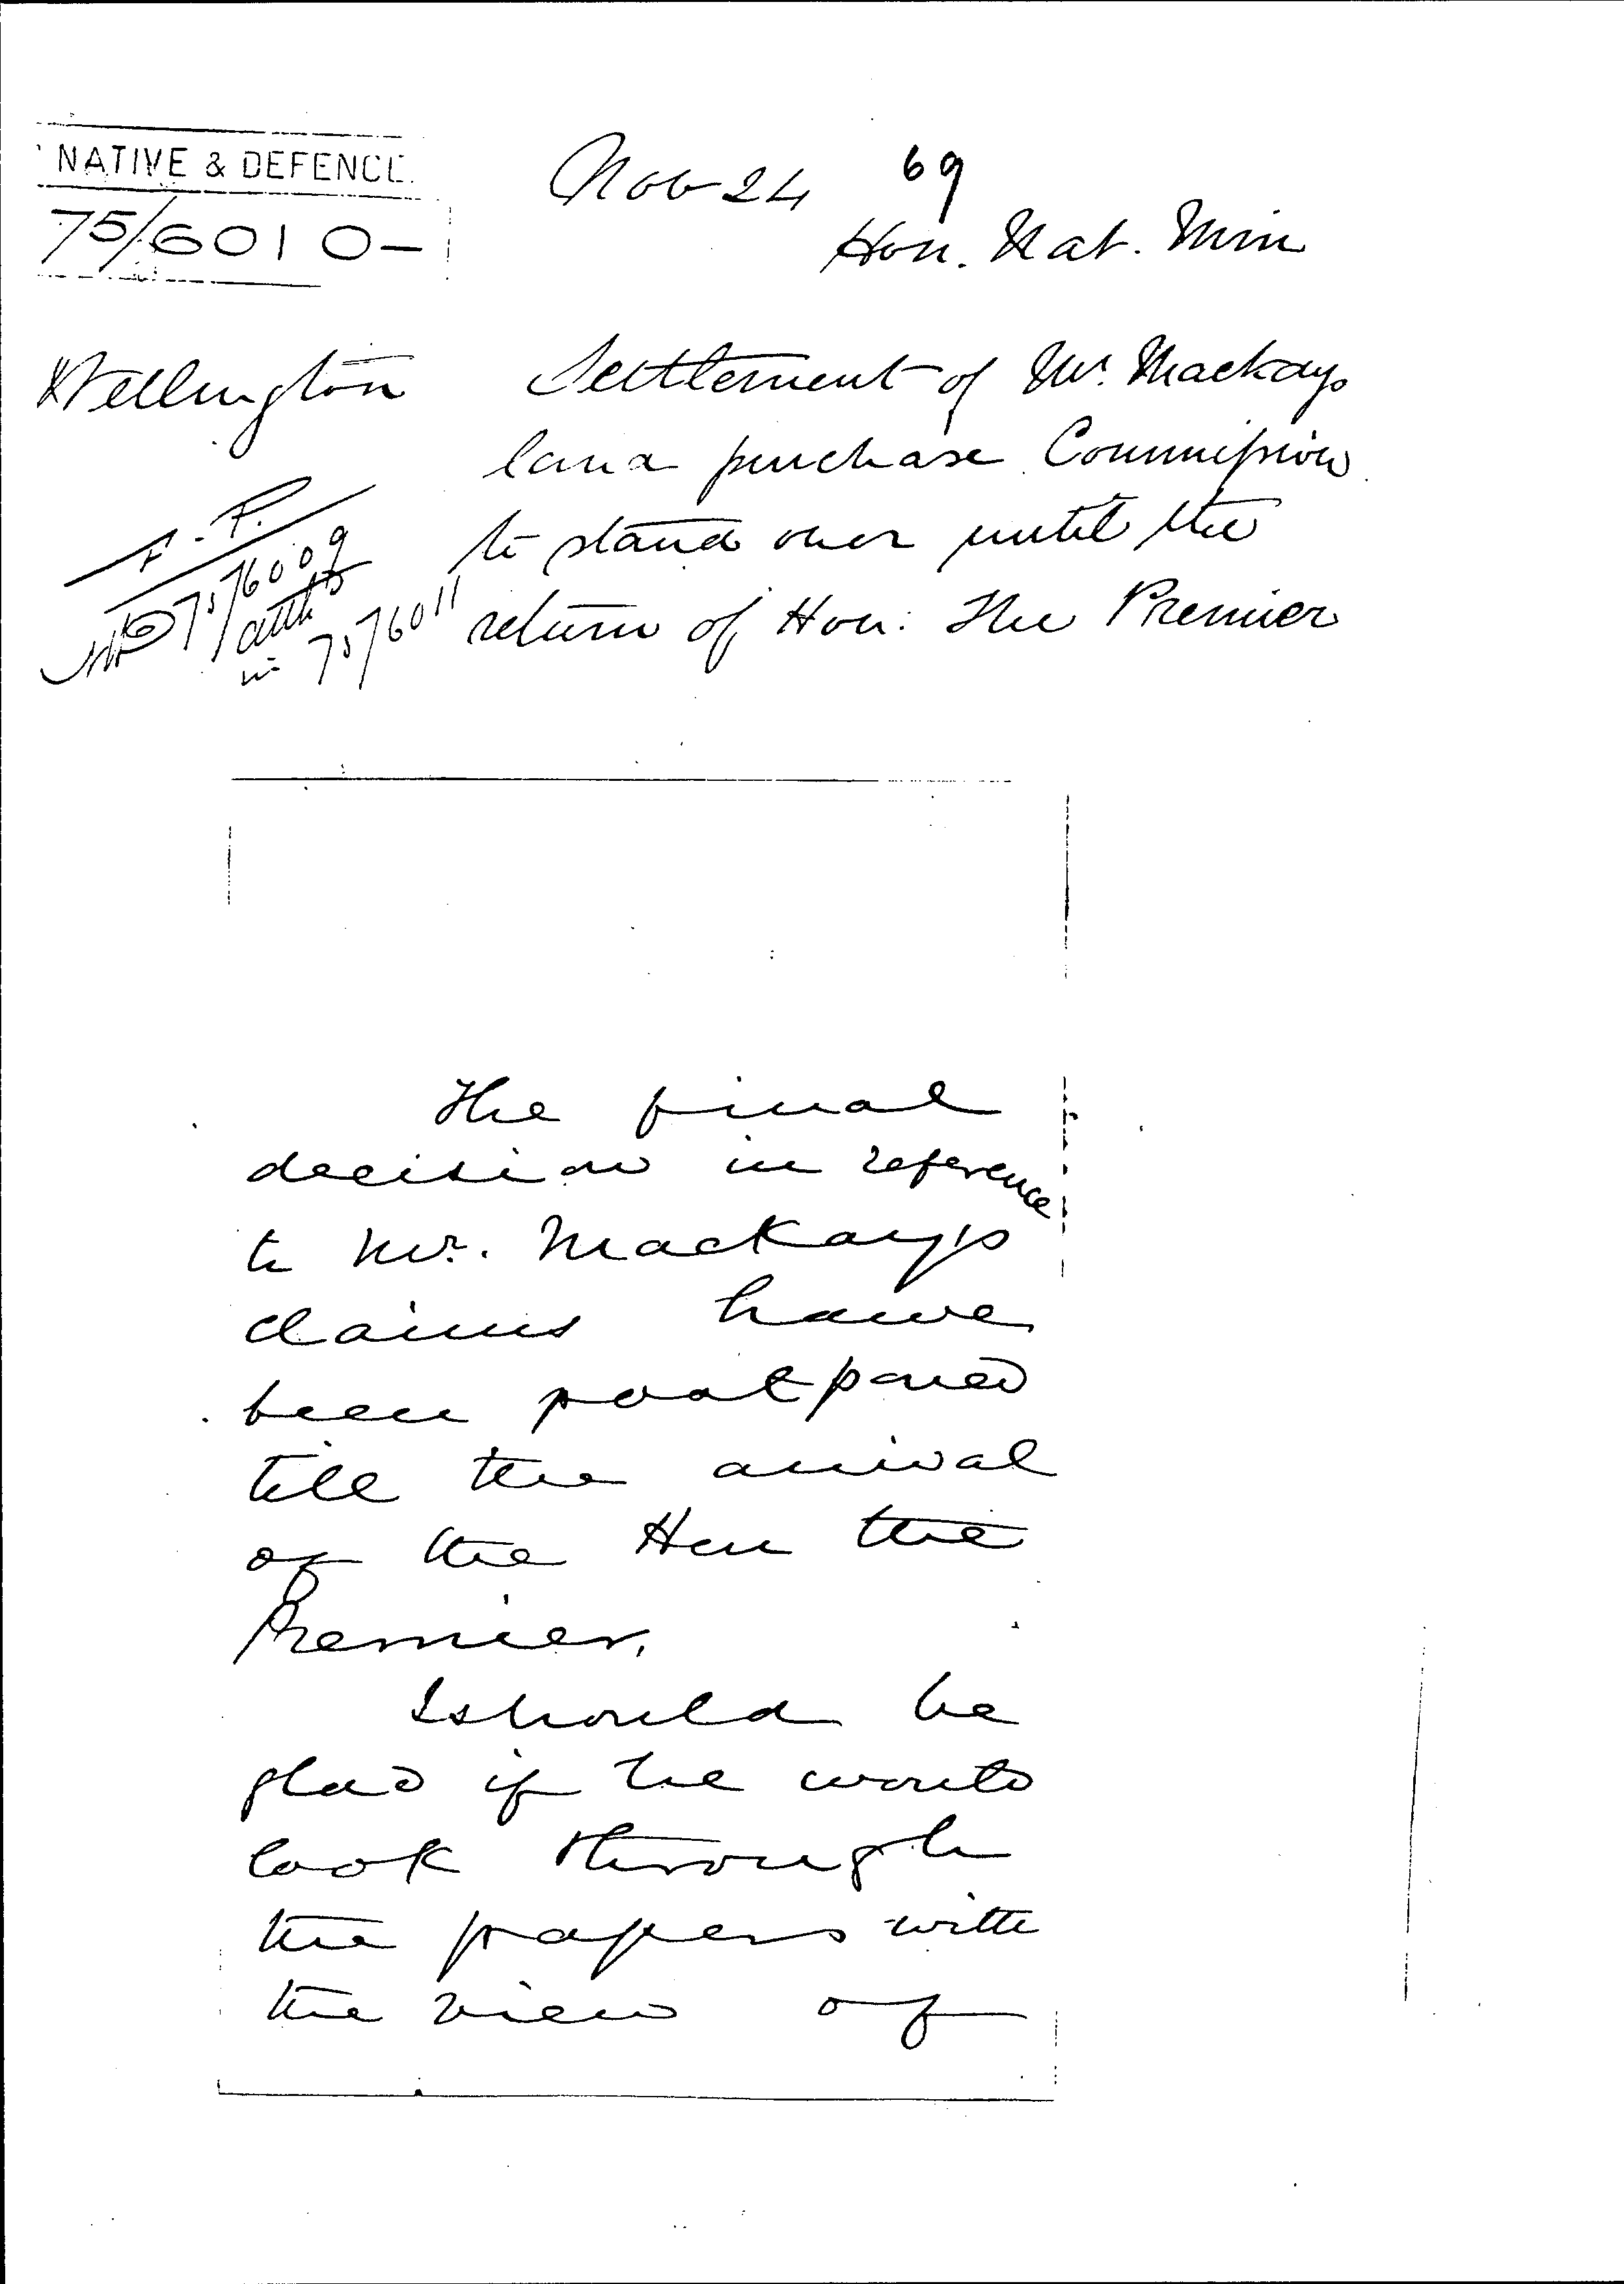 NATIVE & DEFENCE.
75/6010-
Nov 24 69
Hon. Nat. Min
Wellington
Settlement of Mr. Mackays
land purchase Commission
to stand over until the
return of Hon: The Premier
75/6009
in 75/6011
The final
decision in reference
to Mr. Mackay's
claims have
been postponed
till the arrival
of the Hon the
Premier.
I should be
glad if he would
look through
the papers with
the view of